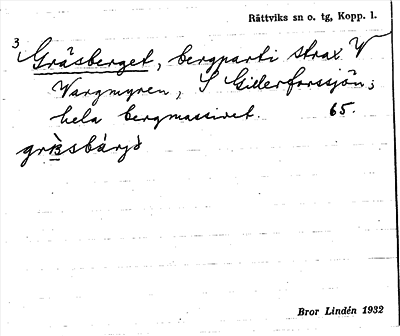 Rättviks sn o. tg, Kopp. l.
3
Gräsberget, bergparti strax V
Vargmyren, S Gillerforssjön;
hela bergmassivet. 65.
Bror Lindén 1932